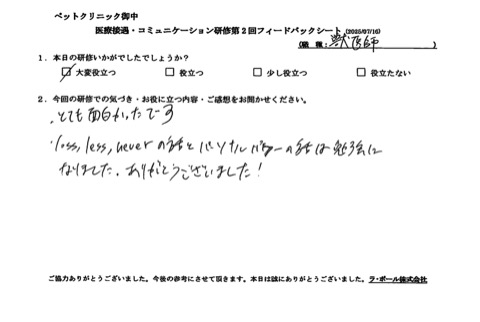 ペットクリニック御中
医療接遇・コミュニケーション研修第2回フィードバックシート (2025/07/16)
(職 種：獣医師)
1．本日の研修いかがでしたでしょうか？
☑ 大変役立つ □ 役立つ □ 少し役立つ □ 役立たない
2．今回の研修での気づき・お役に立つ内容・ご感想をお聞かせください。
・とても面白かったです
・loss, less, neverの話とパーソナルカラーの話は勉強に
なりました。ありがとうございました！
ご協力ありがとうございました。今後の参考にさせて頂きます。本日は誠にありがとうございました。ラ・ポール株式会社